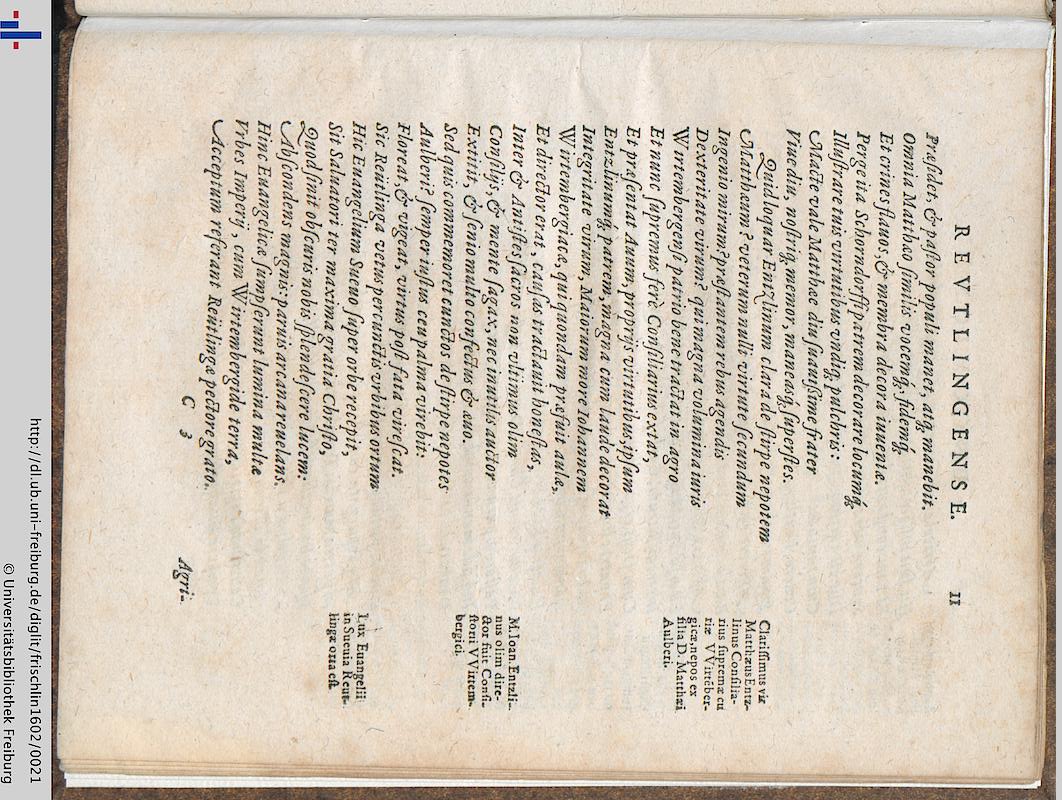 REVTLINGENSE. 11
Præsidet, & pastor populi manet, atq; manebit.
Omnia Matthæo similis vocemq́, fidemq́,
Et crines flauos, & membra decora iuuentæ.
Perge ita Schorndorffi patrem decorare locumq́,
Illustrare tuis virtutibus vndiq; pulchris:
Macte vale Matthæe diu suauissime frater
Viue diu, nostriq; memor, maneasq; superstes.
Quid loquar Entzlinum clara de stirpe nepotem
Matthæum? veterum nulli virtute secundum
Ingenio mirum? præstantem rebus agendis
Dexteritate virum? qui magna volumina iuris
Wirtembergensi patrio bene tractat in agro
Et nunc supremus ferè Consiliarius extat,
Et præsentat Auum, proprijs virtutibus, ipsum
Entzlinumq́ patrem, magna cum laude decorat
Integritate virum, Maiorum more Iohannem
Wirtembergiacæ, qui quondam præfuit aulæ,
Et director erat, causas tractauit honestas,
Inter & Antistes sacros non vltimus olim
Consilijs, & mente sagax, nec inutilis auctor
Extitit, & senio multo confectus & æuo.
Sed quis commemoret cunctos de stirpe nepotes
Aulberi? semper iustus ceu palma virebit:
Floreat, & vigeat, virtus post fata virescat.
Sic Reutlinga vetus per cunctis vrbibus ortum
Hic Euangelium Sueuo super orbe recepit,
Sit Saluatori ter maxima gratia Christo,
Quod sinit obscuris nobis splendescere lucem:
Abscondens magnis: paruis arcana reuelans.
Hinc Euangelicæ sumpserunt lumina multæ
Vrbes Imperij, cum Wirtembergide terra,
Acceptum referant Reütlingæ pectore grato.
C 3 Agri-
Clarissimus vir
Matthæus Entz-
linus Consilia-
rius supremæ cu
riæ VVirtẽber-
gicæ, nepos ex
filia D. Matthæi
Aulberi.
M. Ioan. Entzli-
nus olim dire-
ctor fuit Consi-
storii VVirtem-
bergici.
Lux Euangelii
in Sueuia Reut-
lingæ orta est.
http://dl.ub.uni-freiburg.de/diglit/frischlin1602/0021
© Universitätsbibliothek Freiburg